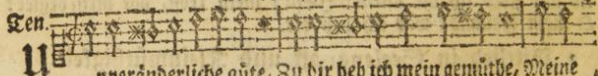 Ten.
U
nveränderliche güte, Zu dir heb ich mein gemüthe, Meine